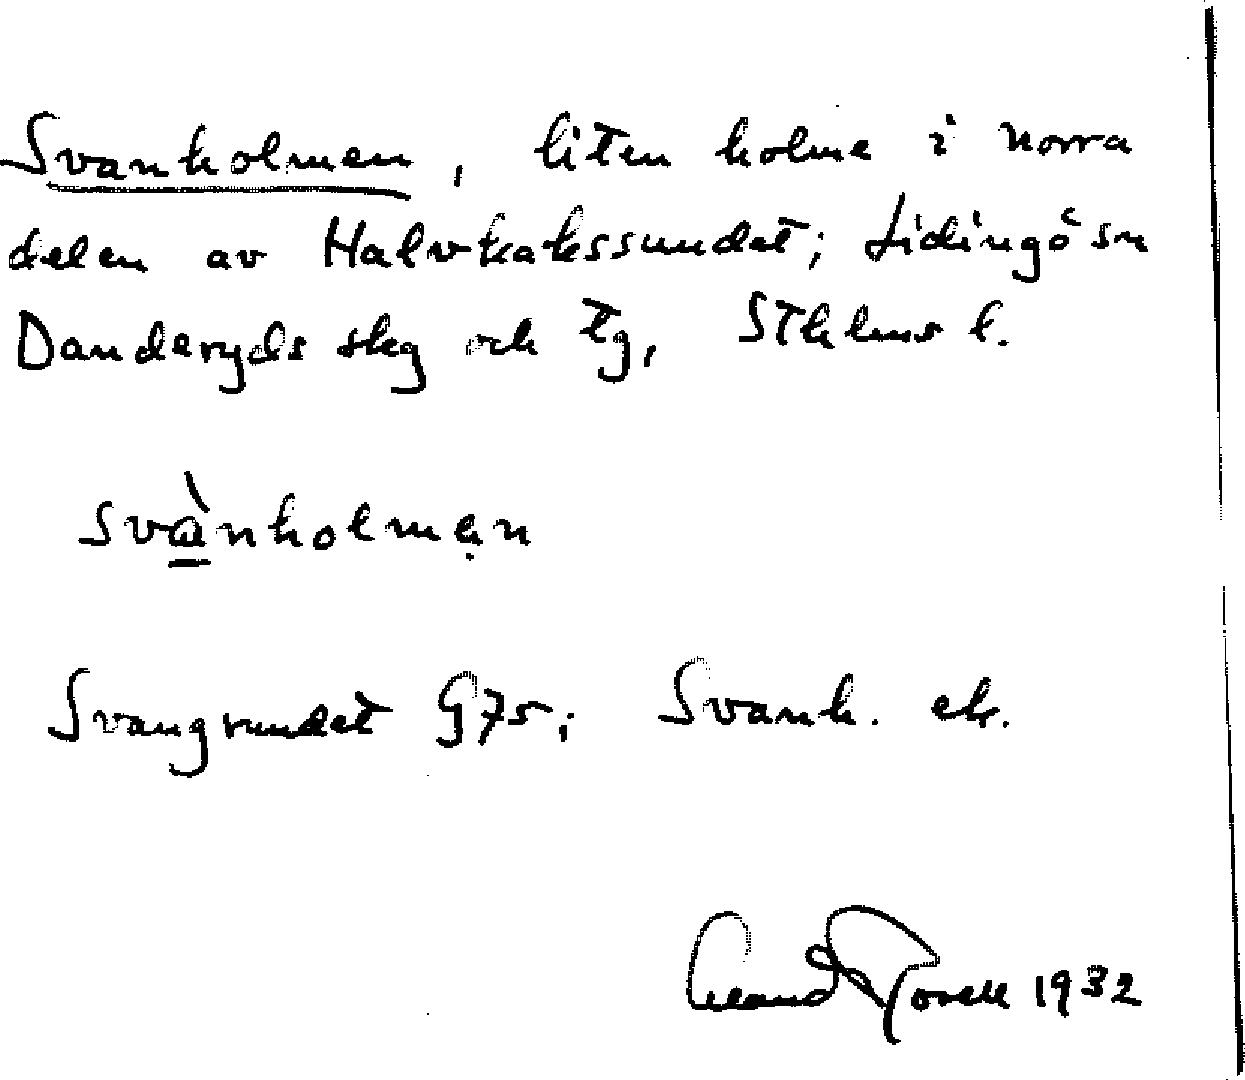 Svanholmen, liten holme i norra
delen av Halvkakssundet; Lidingö sn
Danderyds skg och tg, Sthlms l.
svànholmẹn
Svangrundet G75; Svanh. ek.
1932